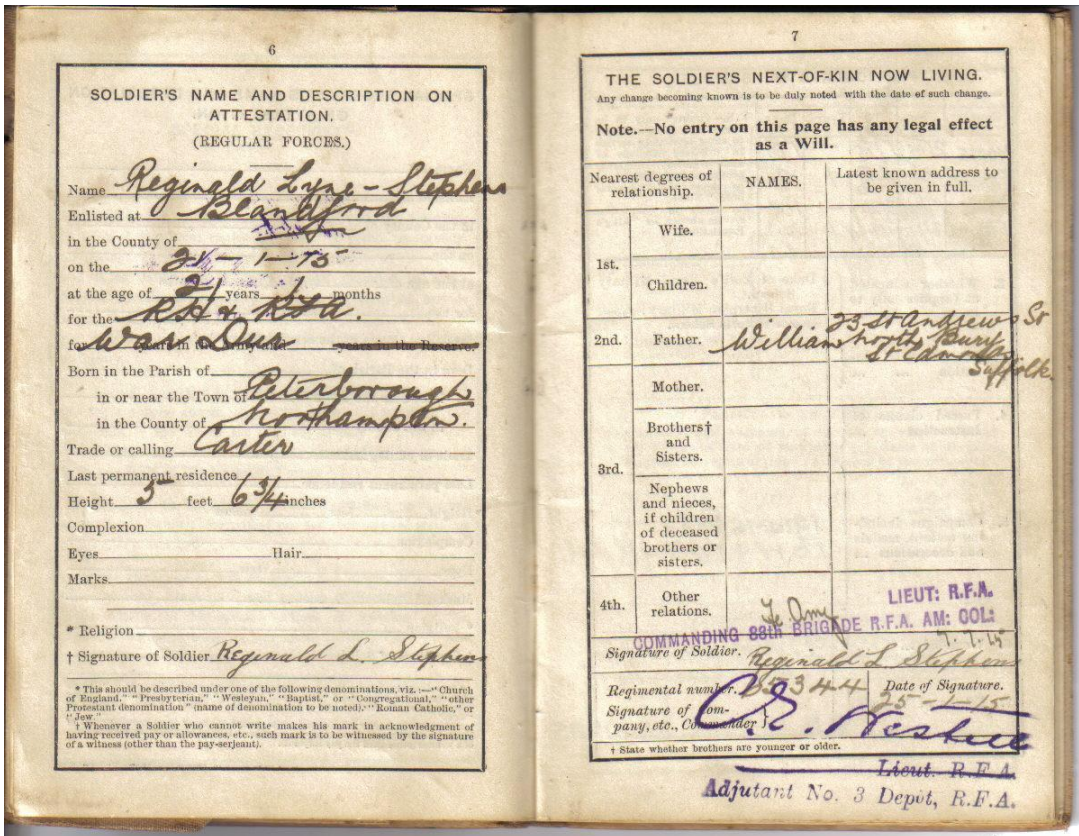 6
SOLDIER'S NAME AND DESCRIPTION ON
ATTESTATION.
(REGULAR FORCES.)
Name Reginald Lyne - Stephens
Enlisted at Blandford
in the County of
on the 25 - 1 - 15
at the age of 21 years 1 months
for the RH & RFA.
for War Dur years in the Reserve.
Born in the Parish of
in or near the Town of Peterborough
in the County of Northampton.
Trade or calling Carter
Last permanent residence
Height 5 feet 6 3/4 inches
Complexion
Eyes Hair
Marks
* Religion
† Signature of Soldier Reginald L. Stephens
* This should be described under one of the following denominations, viz. :—"Church
of England," "Presbyterian," "Wesleyan," "Baptist," or "Congregational," "other
Protestant denomination" (name of denomination to be noted), "Roman Catholic," or
"Jew."
† Whenever a Soldier who cannot write makes his mark in acknowledgment of
having received pay or allowances, etc., such mark is to be witnessed by the signature
of a witness (other than the pay-serjeant).
7
THE SOLDIER'S NEXT-OF-KIN NOW LIVING.
Any change becoming known is to be duly noted with the date of such change.
Note.—No entry on this page has any legal effect
as a Will.
Nearest degrees of
relationship.
NAMES.
Latest known address to
be given in full.
1st.
Wife.
Children.
2nd.
Father.
William
23 St Andrews St
North Bury
St Edmonds
Suffolk
3rd.
Mother.
Brothers†
and
Sisters.
Nephews
and nieces,
if children
of deceased
brothers or
sisters.
4th.
Other
relations.
LIEUT: R.F.A.
COMMANDING 88th BRIGADE R.F.A. AM: COL:
7.7.15
Signature of Soldier. Reginald L Stephens
Regimental number. 65344
Date of Signature.
25-1-15
Signature of Com-
pany, etc., Commander
† State whether brothers are younger or older.
Lieut. R.F.A.
Adjutant No. 3 Depôt, R.F.A.